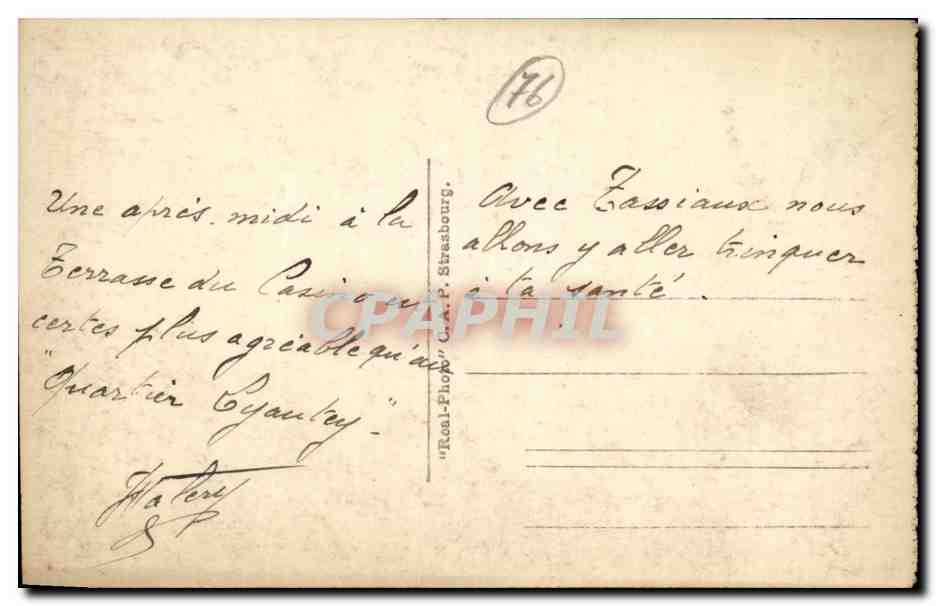 76
Une après-midi à la
Terrasse du Casino
certes plus agréable qu'au
"Quartier Lyautey" -
Avec Tassiaux nous
allons y aller trinquer
à ta santé.
"Real-Photo" C. A. P. Strasbourg.
CPAPHIL